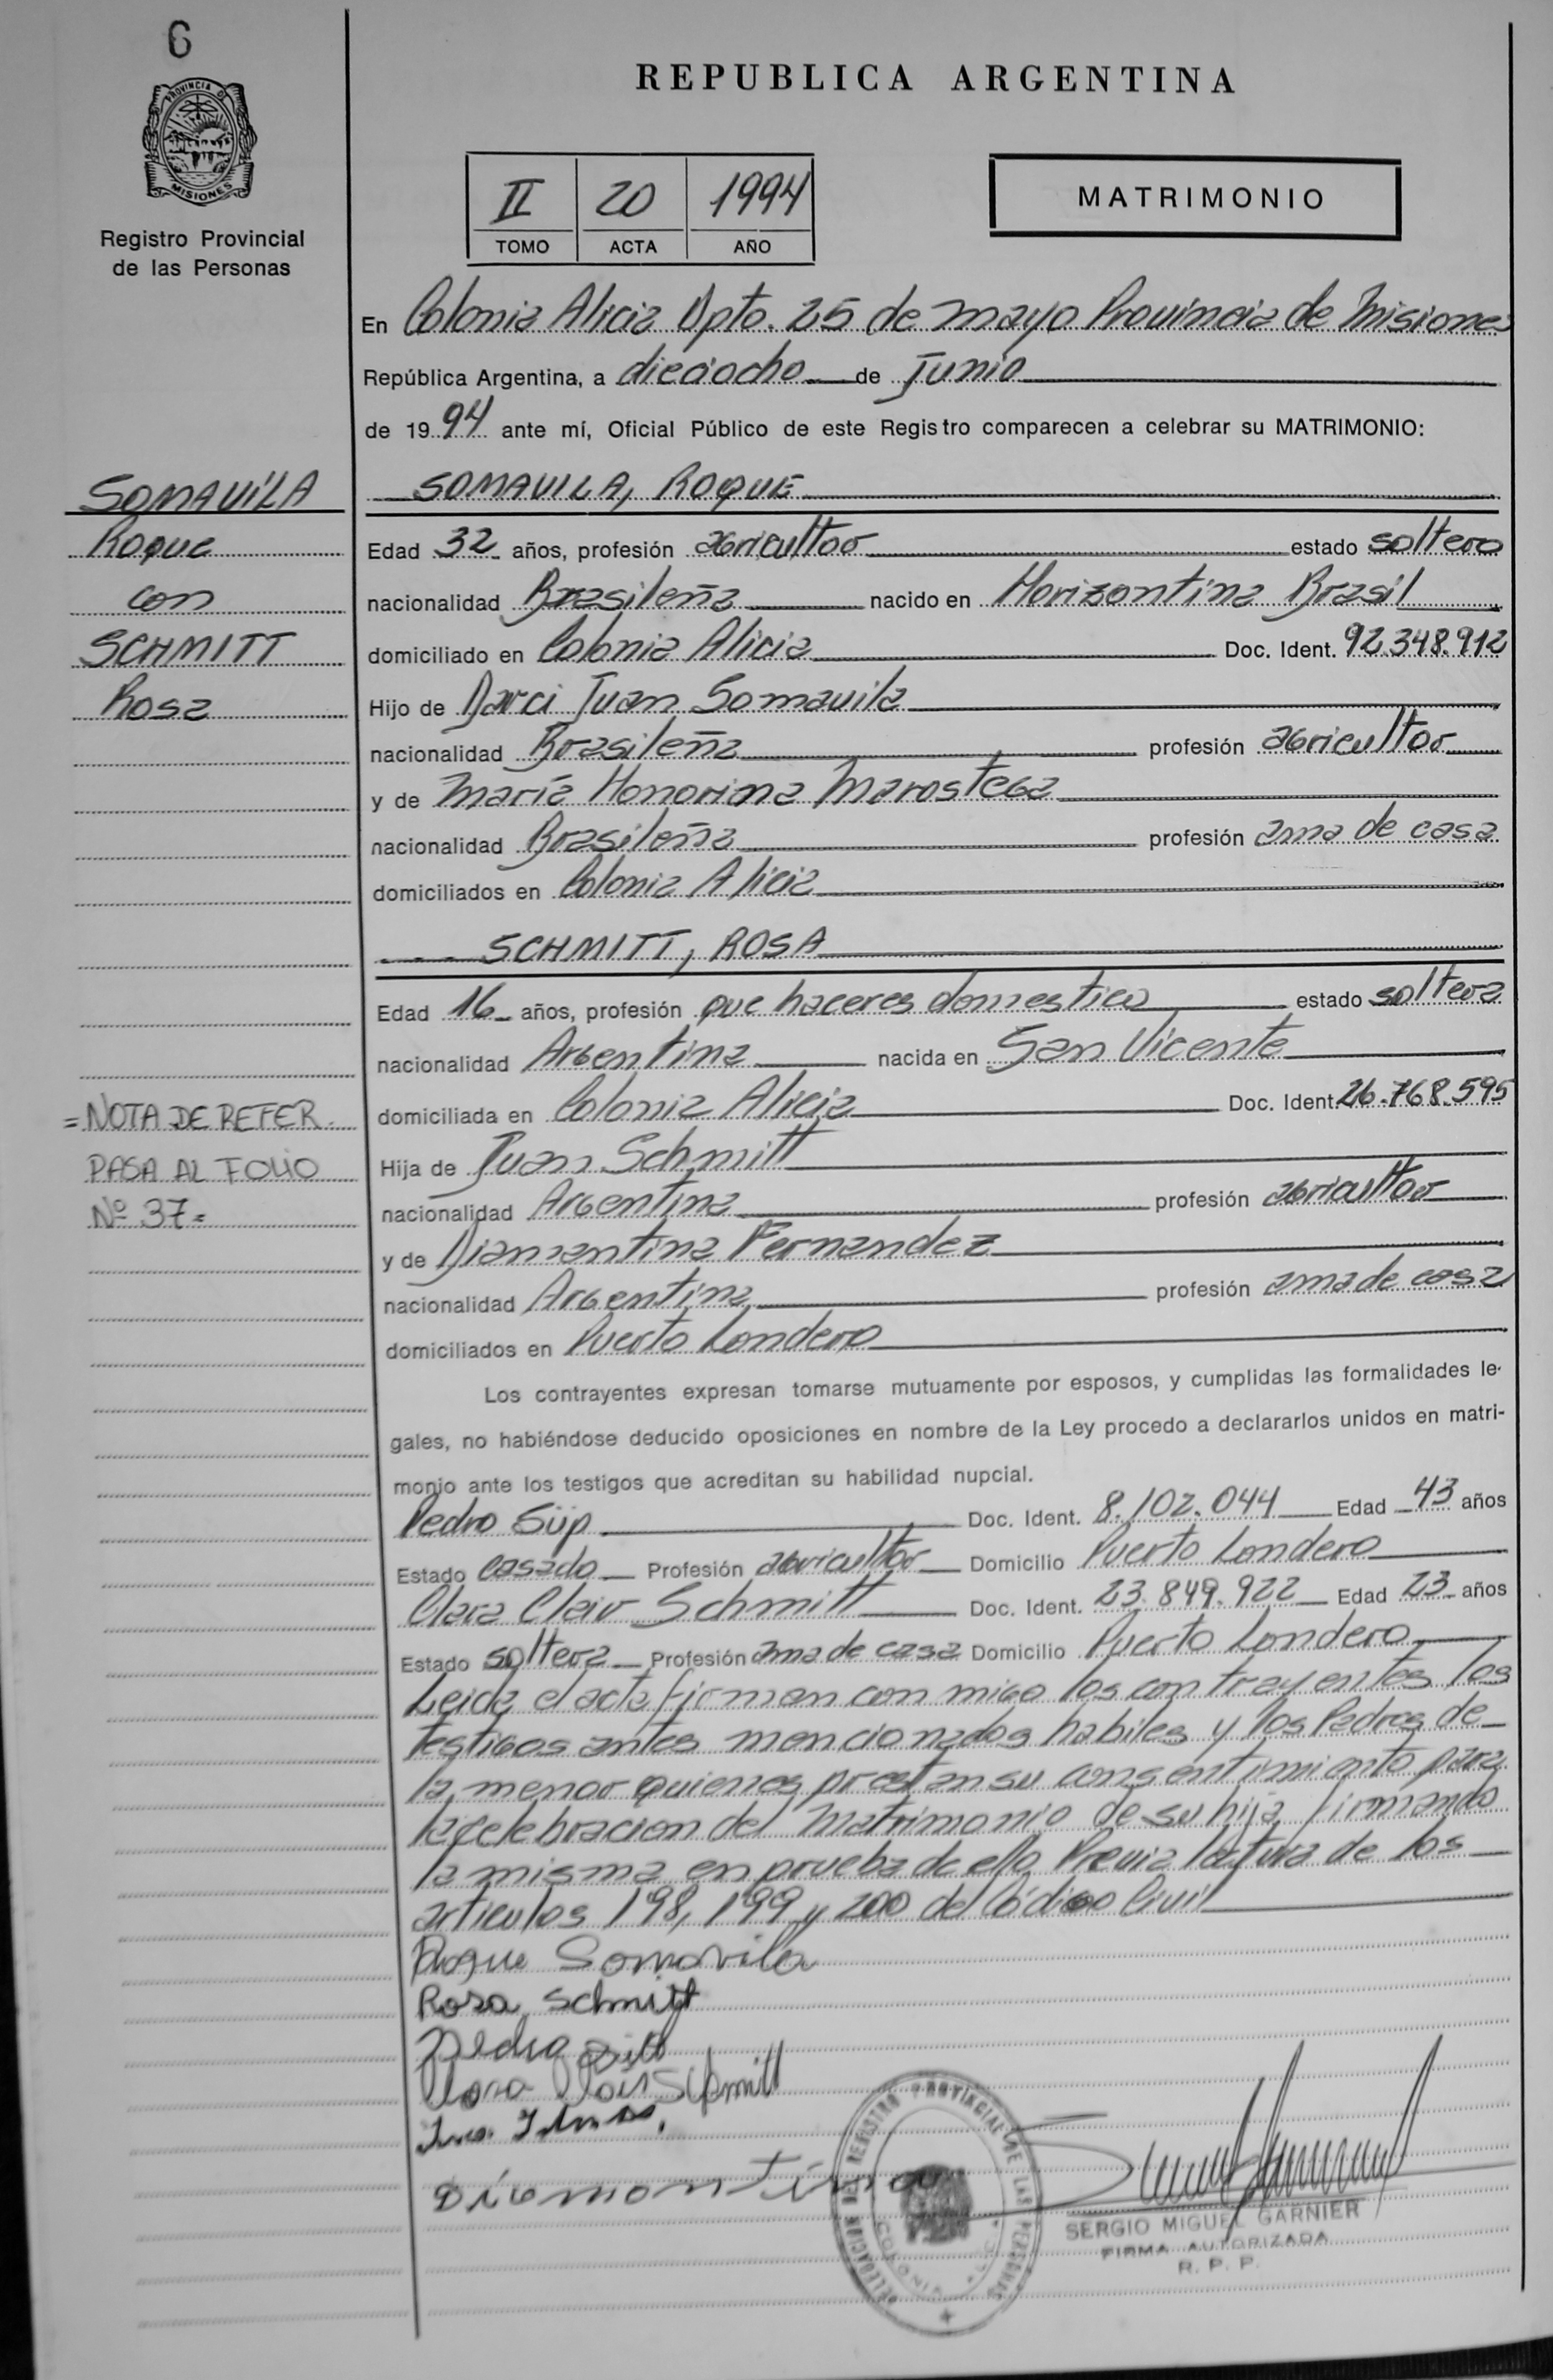 6
PROVINCIA DE
MISIONES
Registro Provincial
de las Personas
REPUBLICA ARGENTINA
II 20 1994
TOMO ACTA AÑO
MATRIMONIO
En Colonia Alicia Dpto. 25 de mayo Provincia de Misiones
República Argentina, a dieciocho de Junio
de 1994 ante mí, Oficial Público de este Registro comparecen a celebrar su MATRIMONIO:
SOMAVILA
Roque
con
SCHMITT
Rosa
SOMAVILA, ROQUE
Edad 32 años, profesión agricultor estado soltero
nacionalidad Brasileña nacido en Horizontina Brasil
domiciliado en Colonia Alicia Doc. Ident. 92.348.912
Hijo de Darci Juan Somavila
nacionalidad Brasileña profesión agricultor
y de María Honorina Marostega
nacionalidad Brasileña profesión ama de casa
domiciliados en Colonia Alicia
SCHMITT, ROSA
Edad 16 años, profesión que haceres domestico estado soltera
nacionalidad Argentina nacida en San Vicente
domiciliada en Colonia Alicia Doc. Ident. 26.768.595
= NOTA DE REFER.
PASA AL FOLIO
Nº 37=
Hija de Juan Schmitt
nacionalidad Argentina profesión agricultor
y de Diamantina Fernandez
nacionalidad Argentina profesión ama de casa
domiciliados en Puerto Londero
Los contrayentes expresan tomarse mutuamente por esposos, y cumplidas las formalidades le-
gales, no habiéndose deducido oposiciones en nombre de la Ley procedo a declararlos unidos en matri-
monio ante los testigos que acreditan su habilidad nupcial.
Pedro Süp Doc. Ident. 8.102.044 Edad 43 años
Estado casado Profesión agricultor Domicilio Puerto Londero
Clara Clair Schmitt Doc. Ident. 23.849.922 Edad 23 años
Estado soltera Profesión ama de casa Domicilio Puerto Londero
Leida el acta firman con migo los contrayentes, los
testigos antes mencionados habiles y los Padres de
la menor quienes prestan su consentimiento para
la celebracion del Matrimonio de su hija, firmando
la misma en prueba de ello Previa lectura de los
articulos 198, 199 y 200 del Código Civil
Roque Somavila
Rosa Schmitt
Pedro
Clara Schmitt
Diamantina
DELEGACION DEL REGISTRO PROVINCIAL DE LAS PERSONAS
COLONIA ALICIA
SERGIO MIGUEL GARNIER
FIRMA AUTORIZADA
R. P. P.